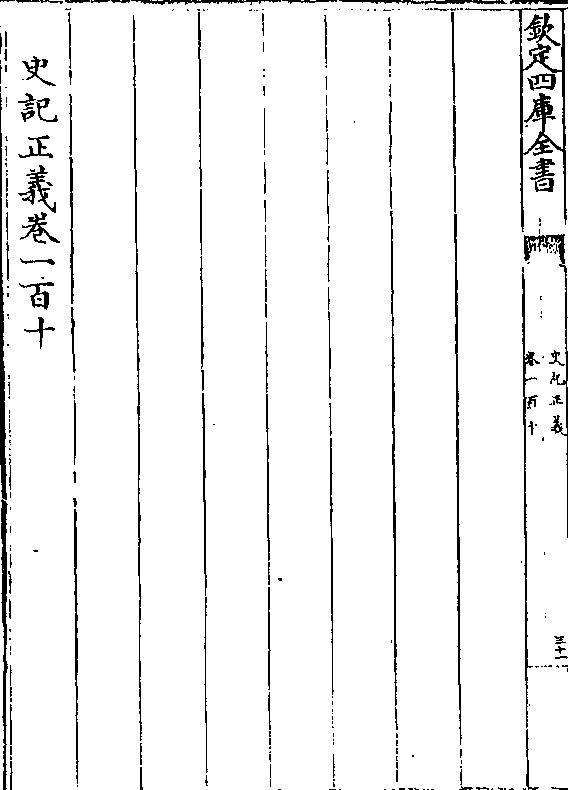 欽定四庫全書
史記正義
卷一百十
三十一
史記正義卷一百十